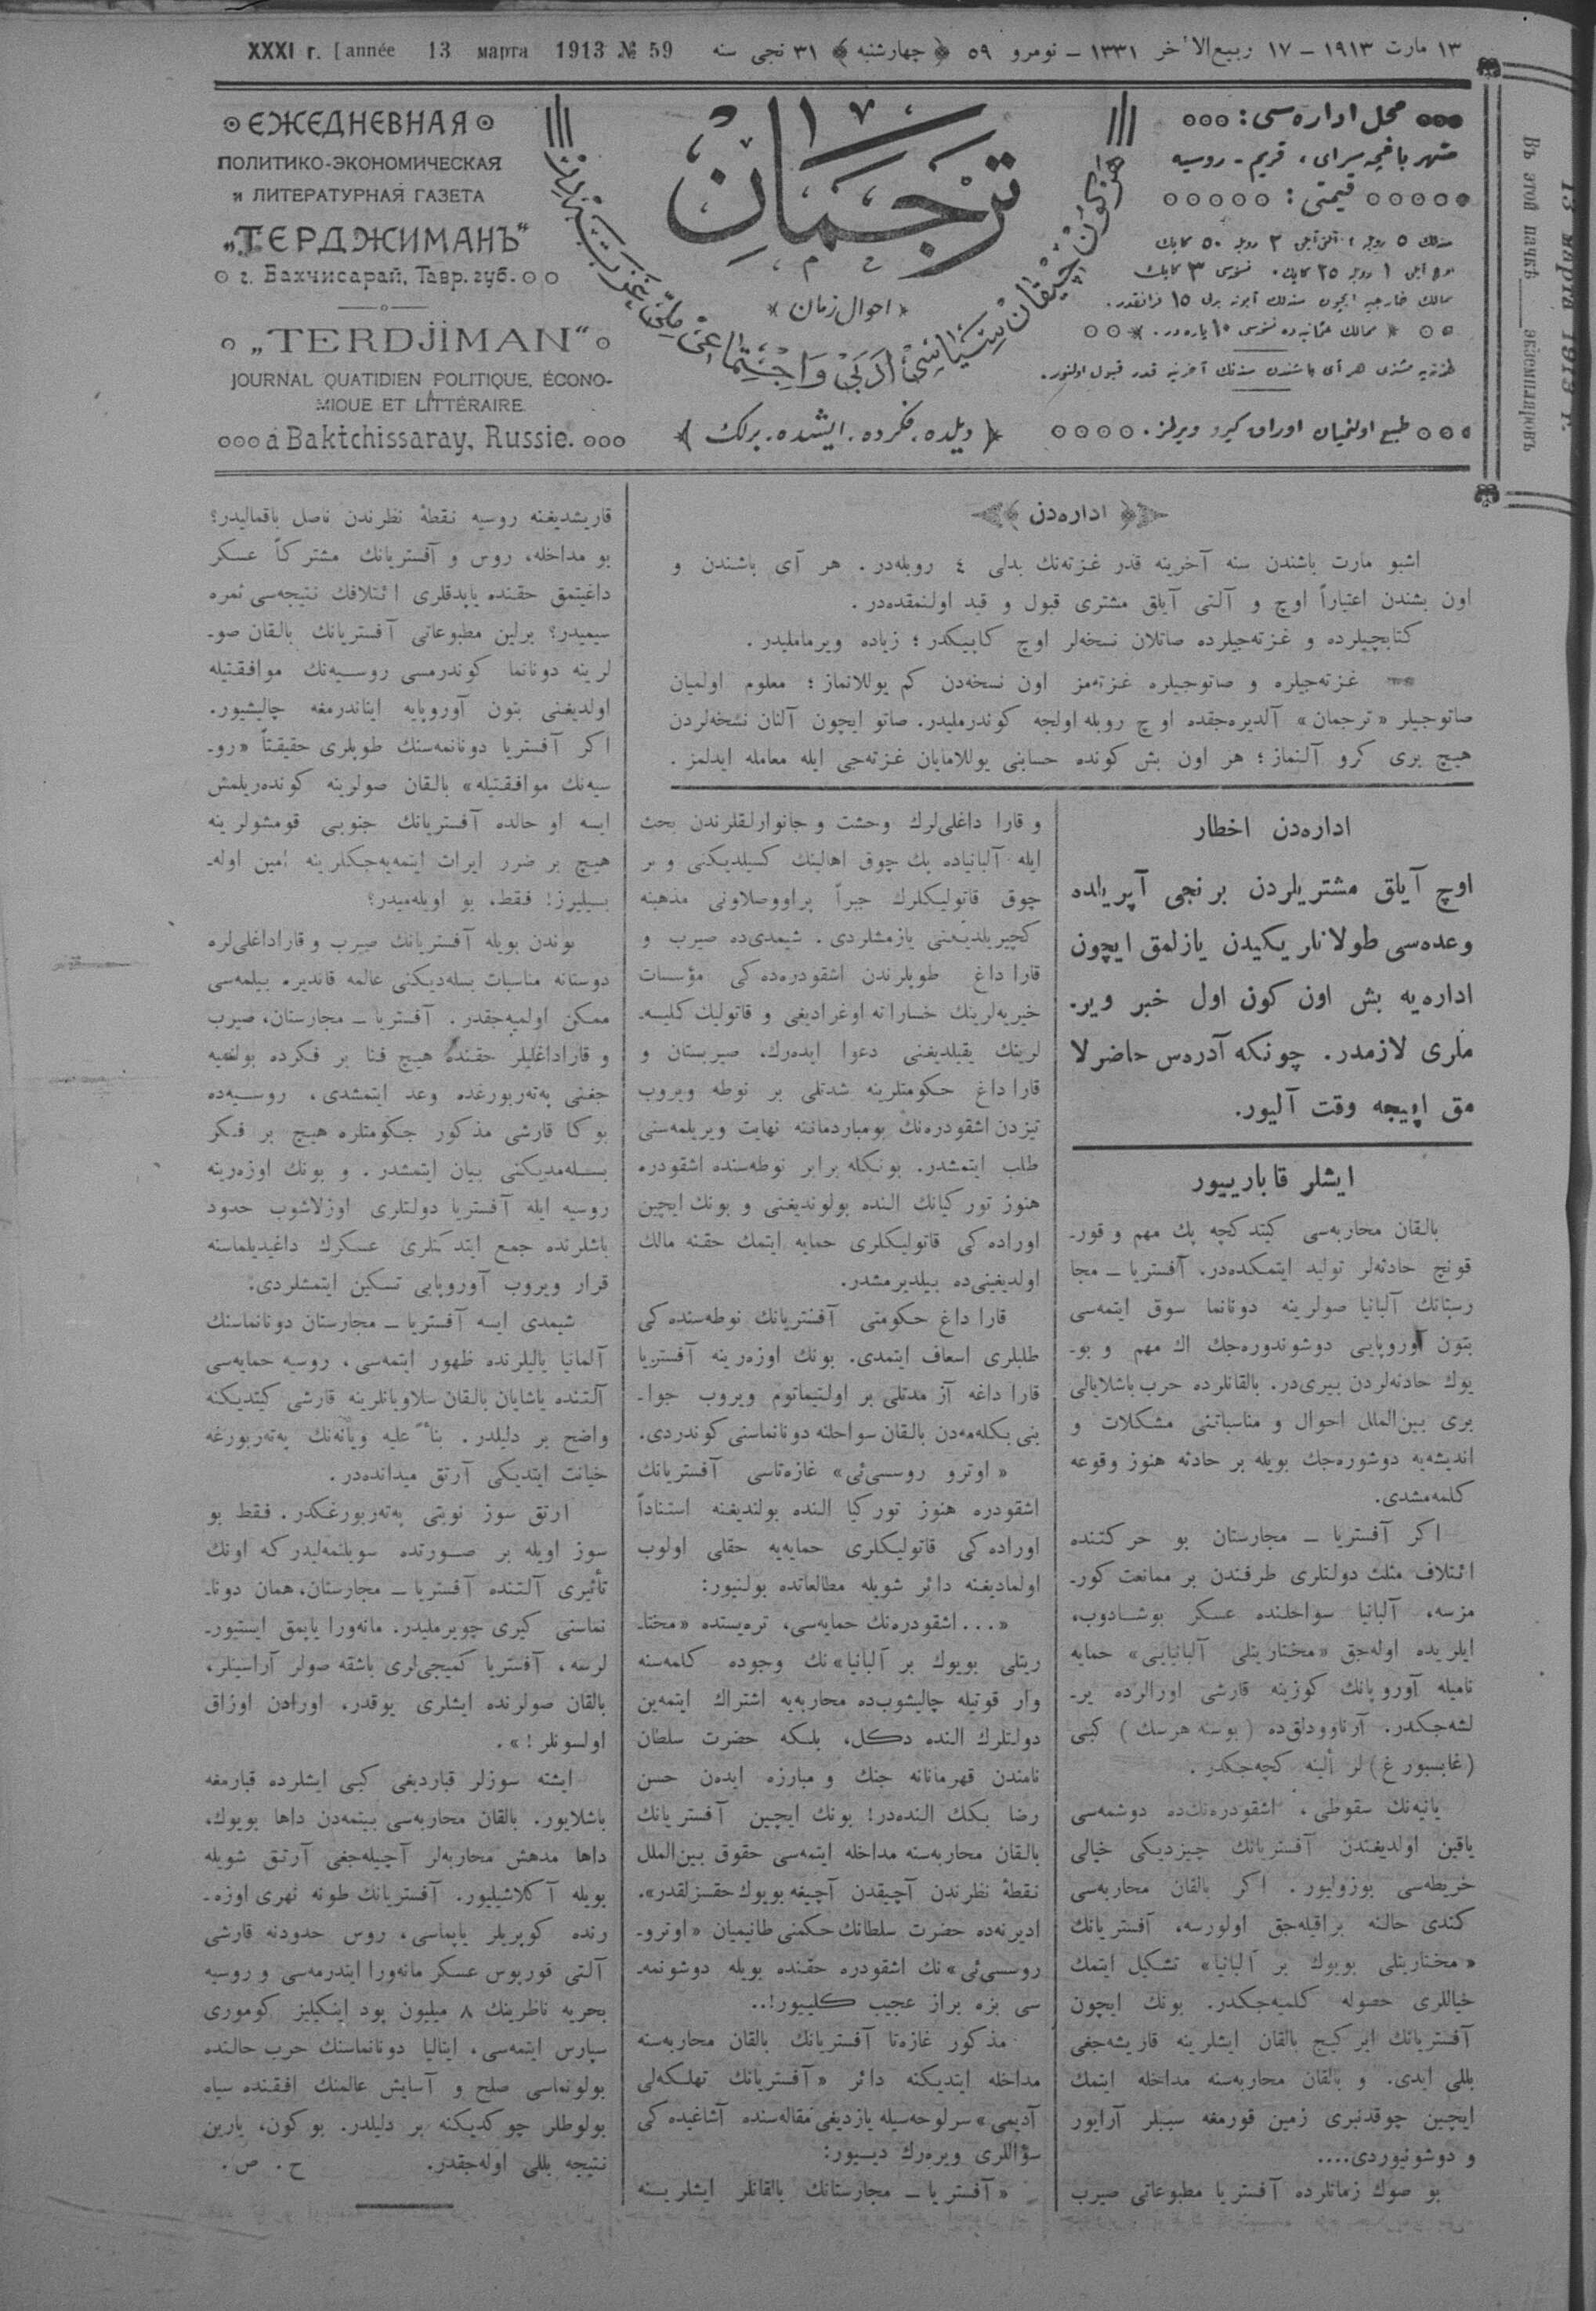 XXXI г. [année 13 марта 1913 № 59
١٣ مارت ١٩١٣ – ١٧ ربيع‌الآخر ١٣٣١ – نومرو ٥٩ ﴿چهارشنبه﴾ ٣١ نجى سنه
ЕЖЕДНЕВНАЯ
ПОЛИТИКО-ЭКОНОМИЧЕСКАЯ
И ЛИТЕРАТУРНАЯ ГАЗЕТА
„ТЕРДЖИМАНЪ“
г. Бахчисарай, Тавр. губ.
„TERDJIMAN“
JOURNAL QUATIDIEN POLITIQUE, ÉCONO-
MIQUE ET LITTÉRAIRE
à Baktchissaray, Russie.
ترجمان
«احوال زمان»
هر كون چيقان سياسى، ادبى و اجتماعى ملى غزته‌در
﴿ديلده، فكرده، ايشده، برلك﴾
محل اداره‌سى:
شهر باغچه سراى، قريم - روسيه
قيمتى:
سنه‌لك ٥ روبله، آلتى آيلق ٣ روبله ٥٠ كاپك
اوچ آيلق ١ روبله ٢٥ كاپك. نسخه‌سى ٣ كاپك
ممالك خارجيه ايچون سنه‌لك آبونه بدلى ١٥ فرانقدر.
ممالك عثمانيه‌ده نسخه‌سى ١٠ پاره‌در.
غزته‌يه مشترى هر آى باشندن سنه‌نك آخرينه قدر قبول اولنور.
طبع اولنميان اوراق كيرو ويرلمز.
Въ этой пачкѣ ____ экземпляровъ
13 марта 1913 г.
اداره‌دن
اشبو مارت باشندن سنه آخرينه قدر غزته‌نك بدلى ٤ روبله‌در. هر آى باشندن و
اون بشندن اعتباراً اوچ و آلتى آيلق مشترى قبول و قيد اولنمقده‌در.
كتابچيلرده و غزته‌جيلرده صاتلان نسخه‌لر اوچ كاپيكدر؛ زياده ويرمامليدر.
غزته‌جيلره و صاتوجيلره غزته‌مز اون نسخه‌دن كم يوللانماز؛ معلوم اولميان
صاتوجيلر «ترجمان» آلديره‌جقده اوچ روبله اولجه كوندرمليدر. صاتو ايچون آلنان نسخه‌لردن
هيچ برى كرو آلنماز؛ هر اون بش كونده حسابنى يوللامايان غزته‌جى ايله معامله ايدلمز.
اداره‌دن اخطار
اوچ آيلق مشتريلردن برنجى آپريلده
وعده‌سى طولانلر يكيدن يازلمق ايچون
اداره‌يه بش اون كون اول خبر وير-
ملرى لازمدر. چونكه آدره‌س حاضرلا
مق اپيجه وقت آليور.
ايشلر قاباريیور
بالقان محاربه‌سى كيتدكچه پك مهم و قور-
قونچ حادثه‌لر توليد ايتمكده‌در. آفستريا – مجا
رستانك آلبانيا صولرينه دونانما سوق ايتمه‌سى
بتون آوروپايى دوشوندوره‌جك اك مهم و بو-
يوك حادثه‌لردن بيرى‌در. بالقانلرده حرب باشلايالى
برى بين‌الملل احوال و مناسباتنى مشكلات و
انديشه‌يه دوشوره‌جك بويله بر حادثه هنوز وقوعه
كلمه‌مشدى.
اكر آفستريا – مجارستان بو حركتنده
ائتلاف مثلث دولتلرى طرفندن بر ممانعت كور-
مزسه، آلبانيا سواحلنده عسكر بوشادوب،
ايلريده اوله‌جق «مختاريتلى آلبانيايى» حمايه
ناميله آوروپانك كوزينه قارشى اورالرده ير-
لشه‌جكدر. آرناوودلق‌ده (بوسنه هرسك) كبى
(غابسبورغ) لر ألينه كچه‌جكدر.
يانيه‌نك سقوطى، اشقودره‌نك‌ده دوشمه‌سى
ياقين اولديغندن آفستريانك چيزديكى خيالى
خريطه‌سى بوزوليور. اكر بالقان محاربه‌سى
كندى حالنه براقيله‌جق اولورسه، آفستريانك
«مختاريتلى بويوك بر آلبانيا» تشكيل ايتمك
خياللرى حصوله كلميه‌جكدر. بونك ايچون
آفستريانك ايركيچ بالقان ايشلرينه قاريشه‌جغى
بللى ايدى. و بالقان محاربه‌سنه مداخله ايتمك
ايچين چوقدنبرى زمين قورمغه سببلر آرايور
و دوشونيوردى....
بو صوك زمانلرده آفستريا مطبوعاتى صيرب
و قارا داغلى‌لرك وحشت و جانوارلقلرندن بحث
ايله آلبانياده پك چوق اهالينك كسيلديكنى و بر
چوق قاتوليكلرك جبراً پراووصلاونى مذهبنه
كچيريلديغنى يازمشلردى. شيمدى‌ده صيرب و
قارا داغ طوپلرندن اشقودره‌ده‌كى مؤسسات
خيريه‌لرينك خساراته اوغراديغى و قاتوليك كليسه-
لرينك يقيلديغنى دعوا ايده‌رك، صيربستان و
قارا داغ حكومتلرينه شدتلى بر نوطه ويروب
تيزدن اشقودره‌نك بومباردماننه نهايت ويريلمه‌سنى
طلب ايتمشدر. بونكله برابر نوطه‌سنده اشقودره
هنوز توركيانك النده بولونديغنى و بونك ايچين
اوراده‌كى قاتوليكلرى حمايه ايتمك حقنه مالك
اولديغينى‌ده بيلديرمشدر.
قارا داغ حكومتى آفستريانك نوطه‌سنده‌كى
طلبلرى اسعاف ايتمدى. بونك اوزه‌رينه آفستريا
قارا داغه آز مدتلى بر اولتيماتوم ويروب جوا-
بنى بكله‌مه‌دن بالقان سواحلنه دونانماسنى كوندردى.
«اوترو روسسى‌ئى» غازه‌تاسى آفستريانك
اشقودره هنوز توركيا النده بولنديغنه استناداً
اوراده‌كى قاتوليكلرى حمايه‌يه حقلى اولوب
اولماديغنه دائر شويله مطالعاتده بولنيور:
«... اشقودره‌نك حمايه‌سى، تره‌يستده «مختا-
ريتلى بويوك بر آلبانيا»نك وجوده كلمه‌سنه
وار قوتيله چاليشوب‌ده محاربه‌يه اشتراك ايتمه‌ين
دولتلرك النده دكل، بلكه حضرت سلطان
نامندن قهرمانانه جنك و مبارزه ايده‌ن حسن
رضا بكك النده‌در! بونك ايچين آفستريانك
بالقان محاربه‌سنه مداخله ايتمه‌سى حقوق بين‌الملل
نقطهٔ نظرندن آچيقدن آچيغه بويوك حقسزلقدر».
ادرنه‌ده حضرت سلطانك حكمنى طانيميان «اوترو-
روسسى‌ئى»نك اشقودره حقنده بويله دوشونمه-
سى بزه براز عجيب كليیور!..
مذكور غازه‌تا آفستريانك بالقان محاربه‌سنه
مداخله ايتديكنه دائر «آفستريانك تهلكه‌لى
آديمى» سرلوحه‌سيله يازديغى مقاله‌سنده آشاغيده‌كى
سؤاللرى ويره‌رك ديیور:
«آفستريا – مجارستانك بالقانلر ايشلرينه
قاريشديغنه روسيه نقطهٔ نظرندن ناصل باقماليدر؟
بو مداخله، روس و آفستريانك مشتركاً عسكر
داغيتمق حقنده ياپدقلرى ائتلافك نتيجه‌سى ثمره
سيميدر؟ برلين مطبوعاتى آفستريانك بالقان صو-
لرينه دونانما كوندرمسى روسيه‌نك موافقتيله
اولديغنى بتون آوروپايه ايناندرمغه چاليشيور.
اكر آفستريا دونانمه‌سنك طوپلرى حقيقتاً «رو-
سيه‌نك موافقتيله» بالقان صولرينه كونده‌ريلمش
ايسه او حالده آفستريانك جنوبى قومشولرينه
هيچ بر ضرر ايراث ايتمه‌يه‌جكلرينه امين اوله-
بيليرز! فقط، بو اويله‌ميدر؟
بوندن بويله آفستريانك صيرب و قاراداغلى‌لره
دوستانه مناسبات بسله‌ديكنى عالمه قانديره بيلمه‌سى
ممكن اولميه‌جقدر. آفستريا – مجارستان، صيرب
و قاراداغليلر حقنده هيچ فنا بر فكرده بولنميه
جغنى په‌ته‌ربورغده وعد ايتمشدى، روسيه‌ده
بوكا قارشى مذكور حكومتلره هيچ بر فكر
بسله‌مديكنى بيان ايتمشدر. و بونك اوزه‌رينه
روسيه ايله آفستريا دولتلرى اوزلاشوب حدود
باشلرنده جمع ايتدكلرى عسكرك داغيديلماسنه
قرار ويروب آوروپايى تسكين ايتمشلردى.
شيمدى ايسه آفستريا – مجارستان دونانماسنك
آلمانيا ياليلرنده ظهور ايتمه‌سى، روسيه حمايه‌سى
آلتنده ياشايان بالقان سلاويانلرينه قارشى كيتديكنه
واضح بر دليلدر. بناءً عليه ويانه‌نك په‌ته‌ربورغه
خيانت ايتديكى آرتق ميدانده‌در.
ارتق سوز نوبتى په‌ته‌ربورغكدر. فقط بو
سوز اويله بر صورتده سويلنمه‌ليدر كه اونك
تأثيرى آلتنده آفستريا – مجارستان، همان دونا-
نماسنى كيرى چويرمليدر. مانه‌ورا ياپمق ايستيور-
لرسه، آفستريا كميجى‌لرى باشقه صولر آراسينلر،
بالقان صولرنده ايشلرى يوقدر، اورادن اوزاق
اولسونلر!».
ايشته سوزلر قبارديغى كبى ايشلرده قبارمغه
باشلايور. بالقان محاربه‌سى بيتمه‌دن داها بويوك،
داها مدهش محاربه‌لر آچيله‌جغى آرتق شويله
بويله آكلاشيليور. آفستريانك طونه نهرى اوزه-
رنده كوپريلر ياپماسى، روس حدودنه قارشى
آلتى قورپوس عسكر مانه‌ورا ايتدرمه‌سى و روسيه
بحريه ناظرينك ٨ ميليون پود اينكيليز كومورى
سپارس ايتمه‌سى، ايتاليا دونانماسنك حرب حالنده
بولونماسى صلح و آسايش عالمنك افقنده سياه
بولوطلر چوكديكنه بر دليلدر. بو كون، يارين
نتيجه بللى اوله‌جقدر. ح. ص.